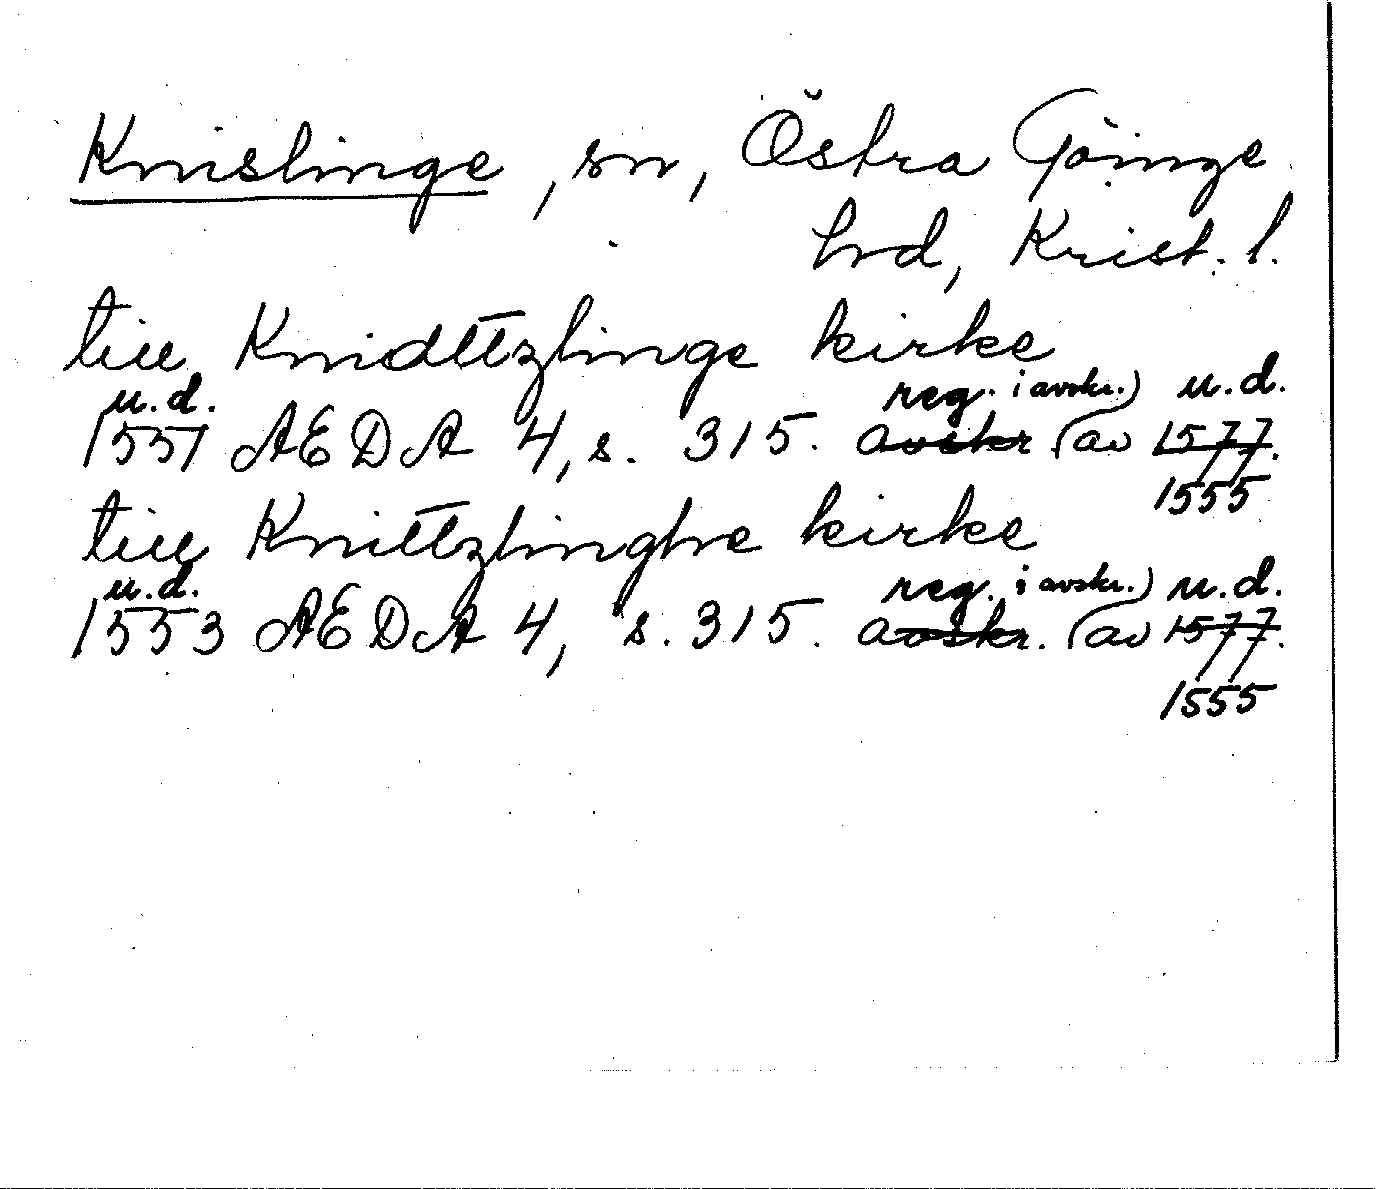 Knislinge, sn, Östra Göinge
hrd, Krist. l.
till Knidttzlinge kirke
u.d. reg. i avskr.) u.d.
1551 AEDA 4, s. 315. avskr (av 1577.
1555
till Knittzlinghe kirke
u.d. reg. i avskr.) u.d.
1553 AEDA 4, s. 315. avskr. (av 1577.
1555